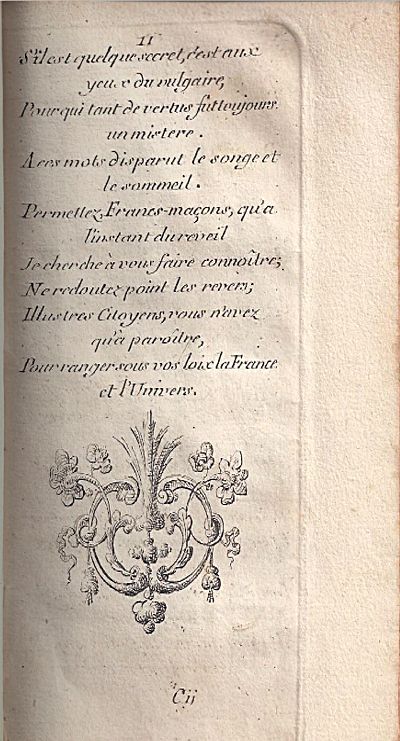 11
S'il est quelque secret, c'est aux
yeux du vulgaire,
Pour qui tant de vertus fut toujours
un mistere.
A ces mots disparut le songe et
le sommeil.
Permettez, Francs-maçons, qu'a
l'instant du reveil
Je cherche à vous faire connoître;
Ne redoutez point les revers;
Illustres Citoyens, vous n'avez
qu'à paroître,
Pour ranger sous vos loix la France
et l'Univers.
Cij